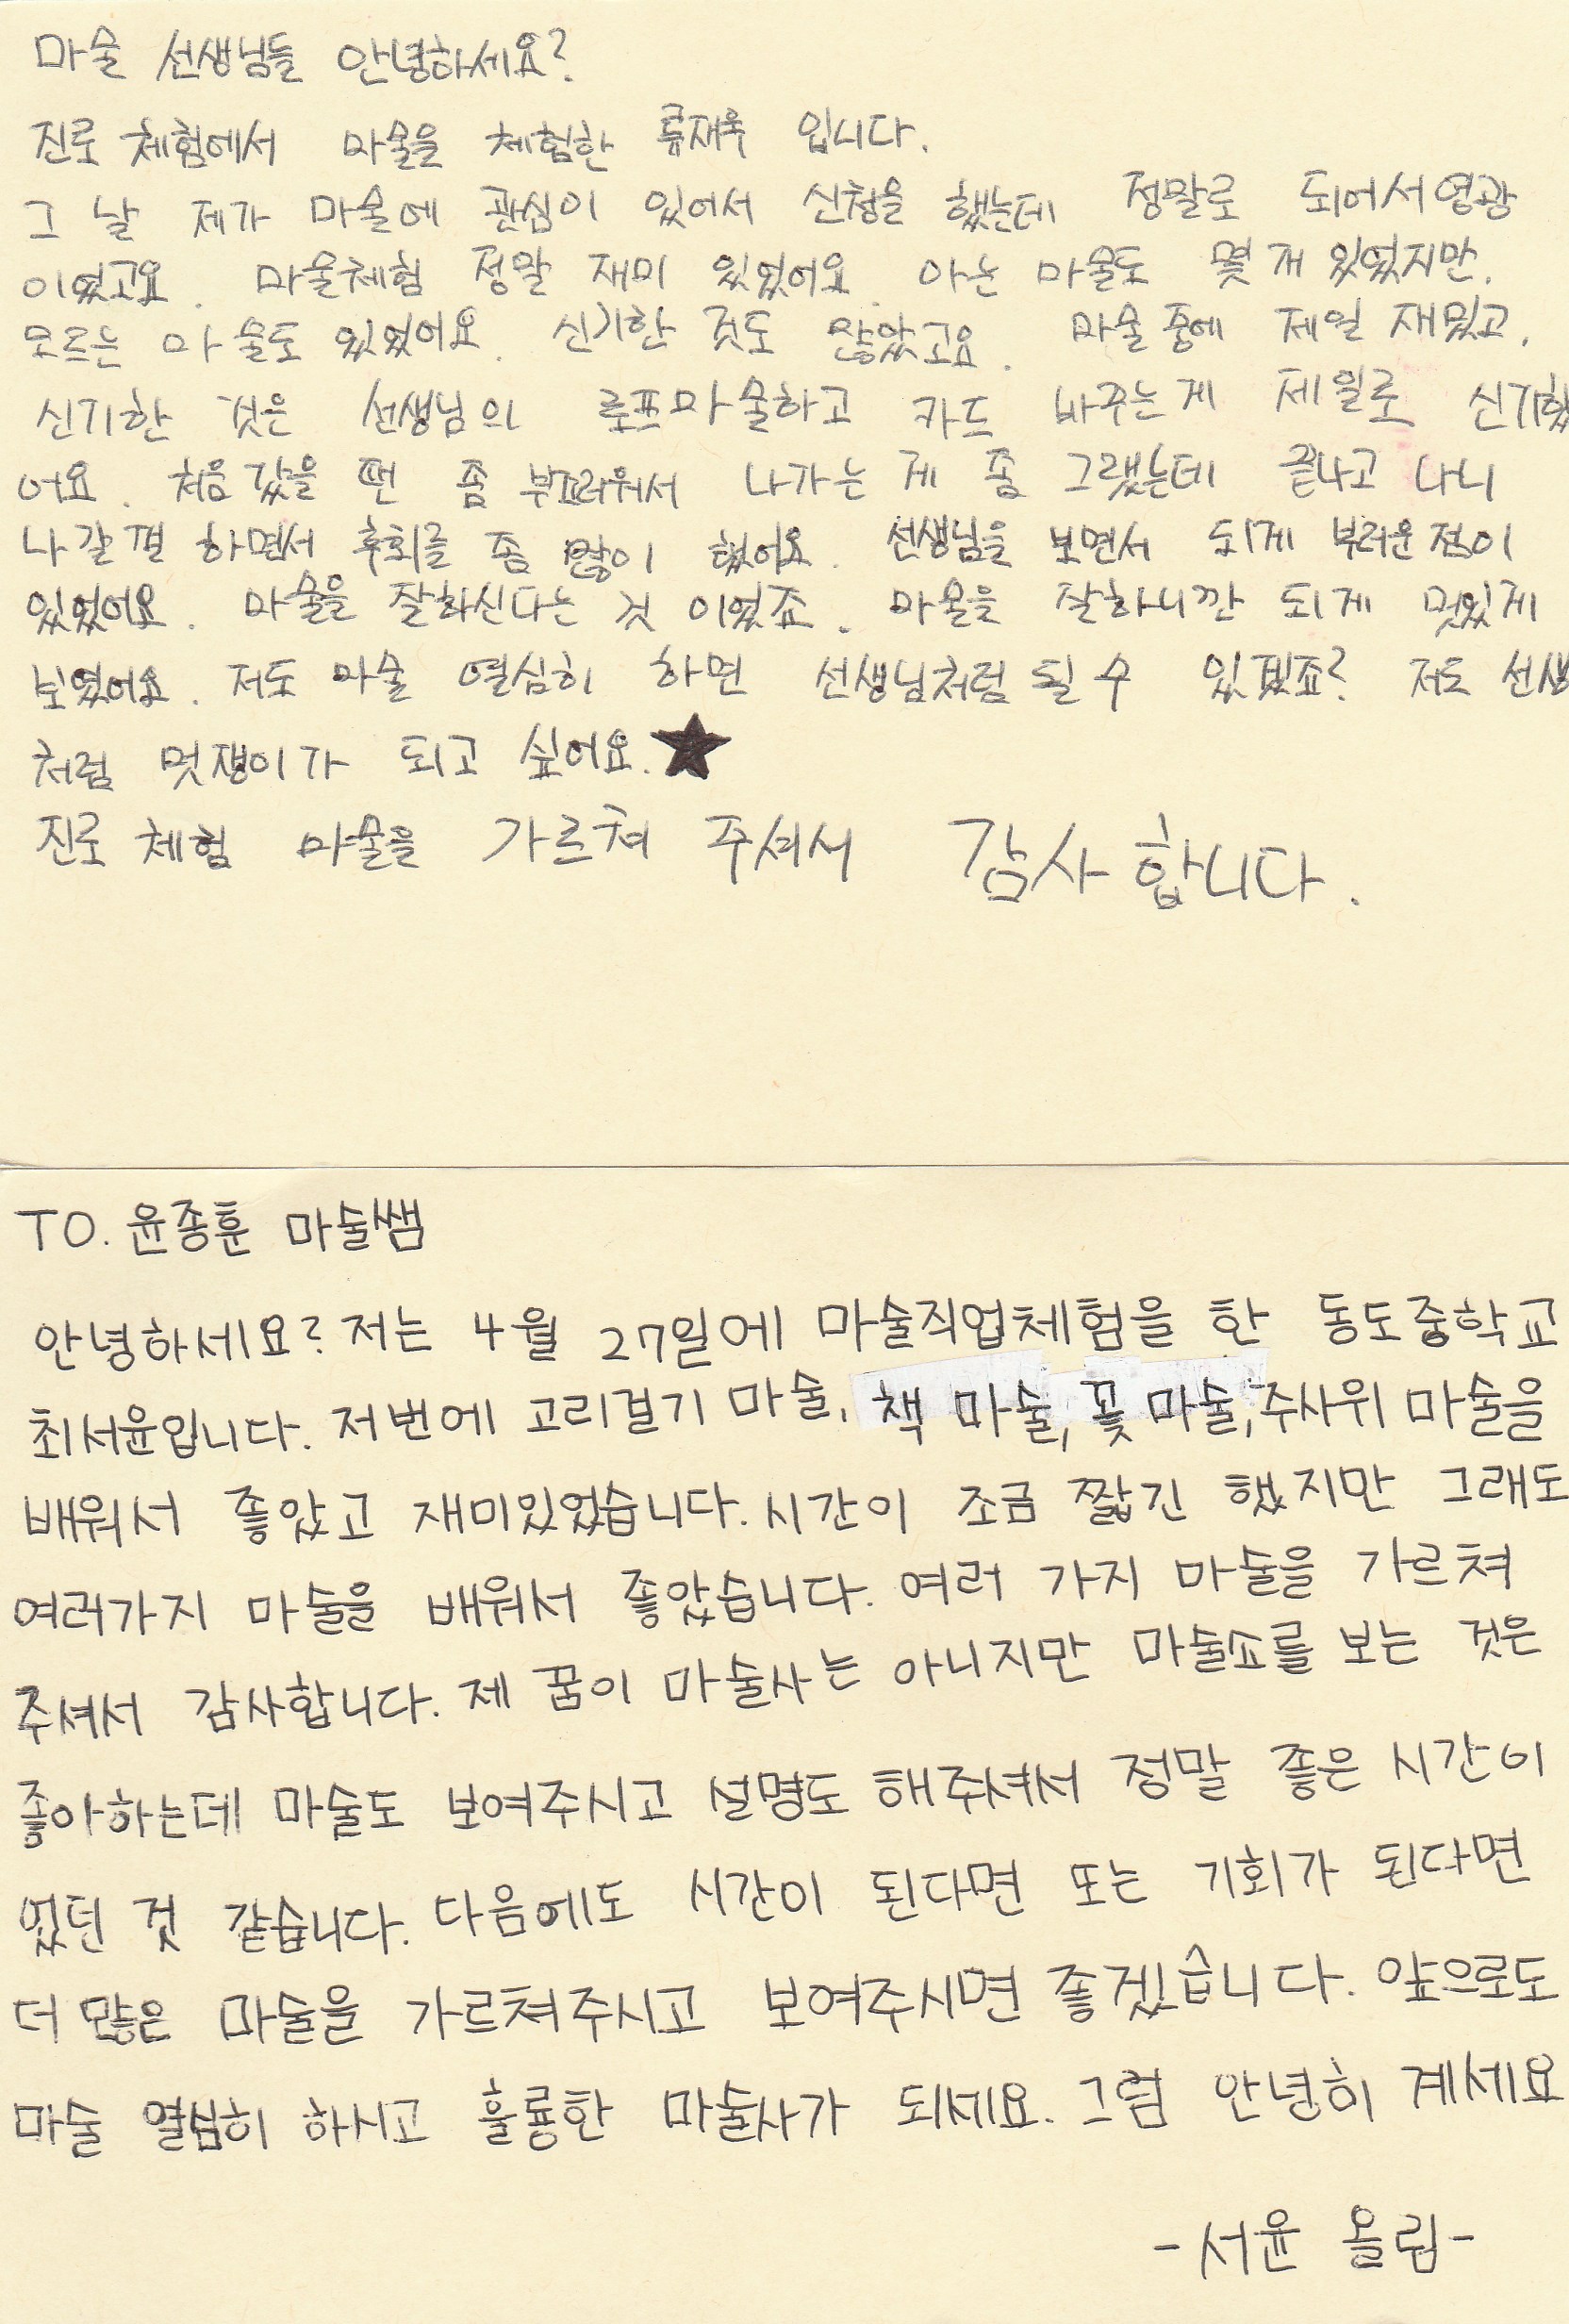 마술 선생님들 안녕하세요?
진로 체험에서 마술을 체험한 류재욱 입니다.
그 날 제가 마술에 관심이 있어서 신청을 했는데 정말로 되어서 영광
이었고요. 마술체험 정말 재미 있었어요. 아는 마술도 몇 개 있었지만,
모르는 마술도 있었어요. 신기한 것도 많았고요. 마술 중에 제일 재밌고,
신기한 것은 선생님의 로프마술하고 카드 바꾸는게 제일로 신기했
어요. 처음 갔을 땐 좀 부끄러워서 나가는 게 좀 그랬는데 끝나고 나니
나갈껄 하면서 후회를 좀 많이 했어요. 선생님을 보면서 되게 부러운 점이
있었어요. 마술을 잘하신다는 것 이었죠. 마술을 잘하니깐 되게 멋있게
보였어요. 저도 마술 열심히 하면 선생님처럼 될 수 있겠죠? 저도 선생
처럼 멋쟁이가 되고 싶어요.★
진로 체험 마술을 가르쳐 주셔서 감사 합니다.
TO. 윤종훈 마술쌤
안녕하세요? 저는 4월 27일에 마술직업체험을 한 동도중학교
최서윤입니다. 저번에 고리걸기 마술, 책 마술, 꽃 마술, 주사위 마술을
배워서 좋았고 재미있었습니다. 시간이 조금 짧긴 했지만 그래도
여러가지 마술을 배워서 좋았습니다. 여러 가지 마술을 가르쳐
주셔서 감사합니다. 제 꿈이 마술사는 아니지만 마술쇼를 보는 것은
좋아하는데 마술도 보여주시고 설명도 해주셔서 정말 좋은 시간이
었던 것 같습니다. 다음에도 시간이 된다면 또는 기회가 된다면
더 많은 마술을 가르쳐주시고 보여주시면 좋겠습니다. 앞으로도
마술 열심히 하시고 훌륭한 마술사가 되세요. 그럼 안녕히 계세요
-서윤 올림-